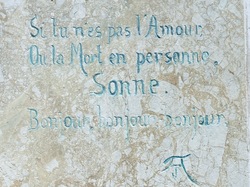 Si tu n'es pas l'Amour,
Ou la Mort en personne,
Sonne.
Bonjour, bonjour, bonjour.